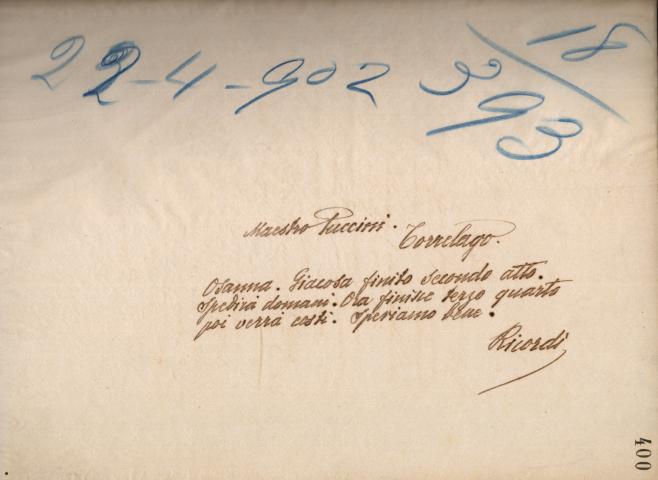 22-4-902
18
3/93
Maestro Puccini. Torrelago.
Osanna. Giacosa finito secondo atto.
Spedirà domani. Ora finisce terzo quarto
poi verrà costì. Speriamo bene.
Ricordi
400